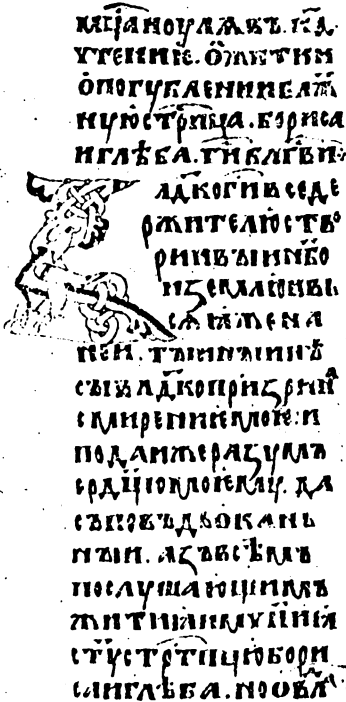 мцⷭ҇а иоулѧ въ. к҃д.
чтениѥ. о житии и
о погублении блж҃
ную стрⷭ҇тпца. бориса
и глѣба. ги҃ блгⷭ҇ви.
Влⷣко ги҃ вседе
ржителю ство
ривыи нб҃о
и землю и вь
сѧ ꙗже на
неи. ты и нынѣ
сы влⷣко призри на
смирениѥ моѥ. и
подаи же разумъ
срдц҃ю моѥму. да
съповѣдѣ окань
ныи. азъ всѣмъ
послушающимъ
житиꙗ и муч҃ниꙗ
ст҃ую стрⷭ҇тпцю бори
са и глѣба. но о влⷣ